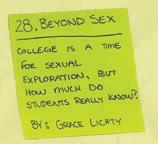 28. BEYOND SEX
COLLEGE IS A TIME
FOR SEXUAL
EXPLORATION, BUT
HOW MUCH DO
STUDENTS REALLY KNOW?
BY: GRACE LICHTY